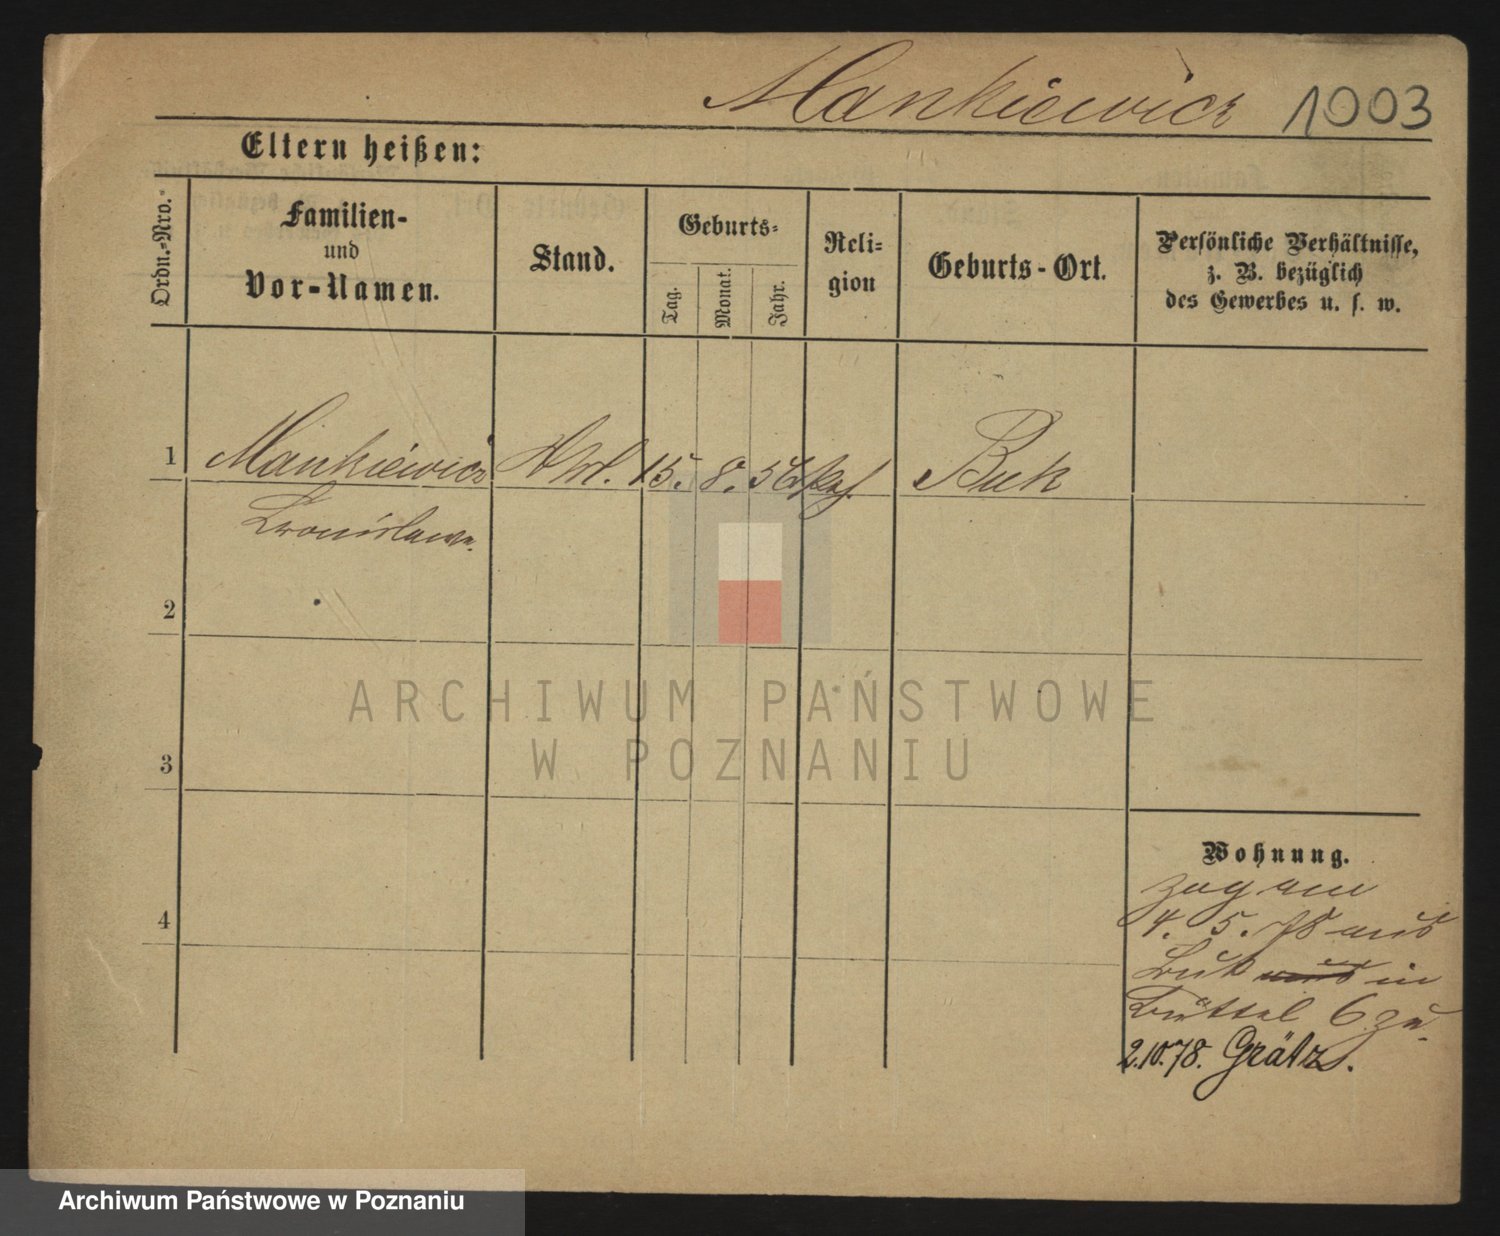 Mankiewicz 1003
Eltern heißen:
Ordn.-Nro.
Familien-
und
Vor-Namen.
Stand.
Geburts-
Tag.
Monat.
Jahr.
Reli-
gion
Geburts-Ort.
Persönliche Verhältnisse,
z. B. bezüglich
des Gewerbes u. s. w.
1 Mankiewicz 15. 8. 56 Buk
Bronislawa.
2
3
4
ARCHIWUM PAŃSTWOWE
W POZNANIU
Wohnung.
zog am
4. 5. 78 aus
Buk aus in
Büttel 6 zu.
2.10.78. Grätz.
Archiwum Państwowe w Poznaniu